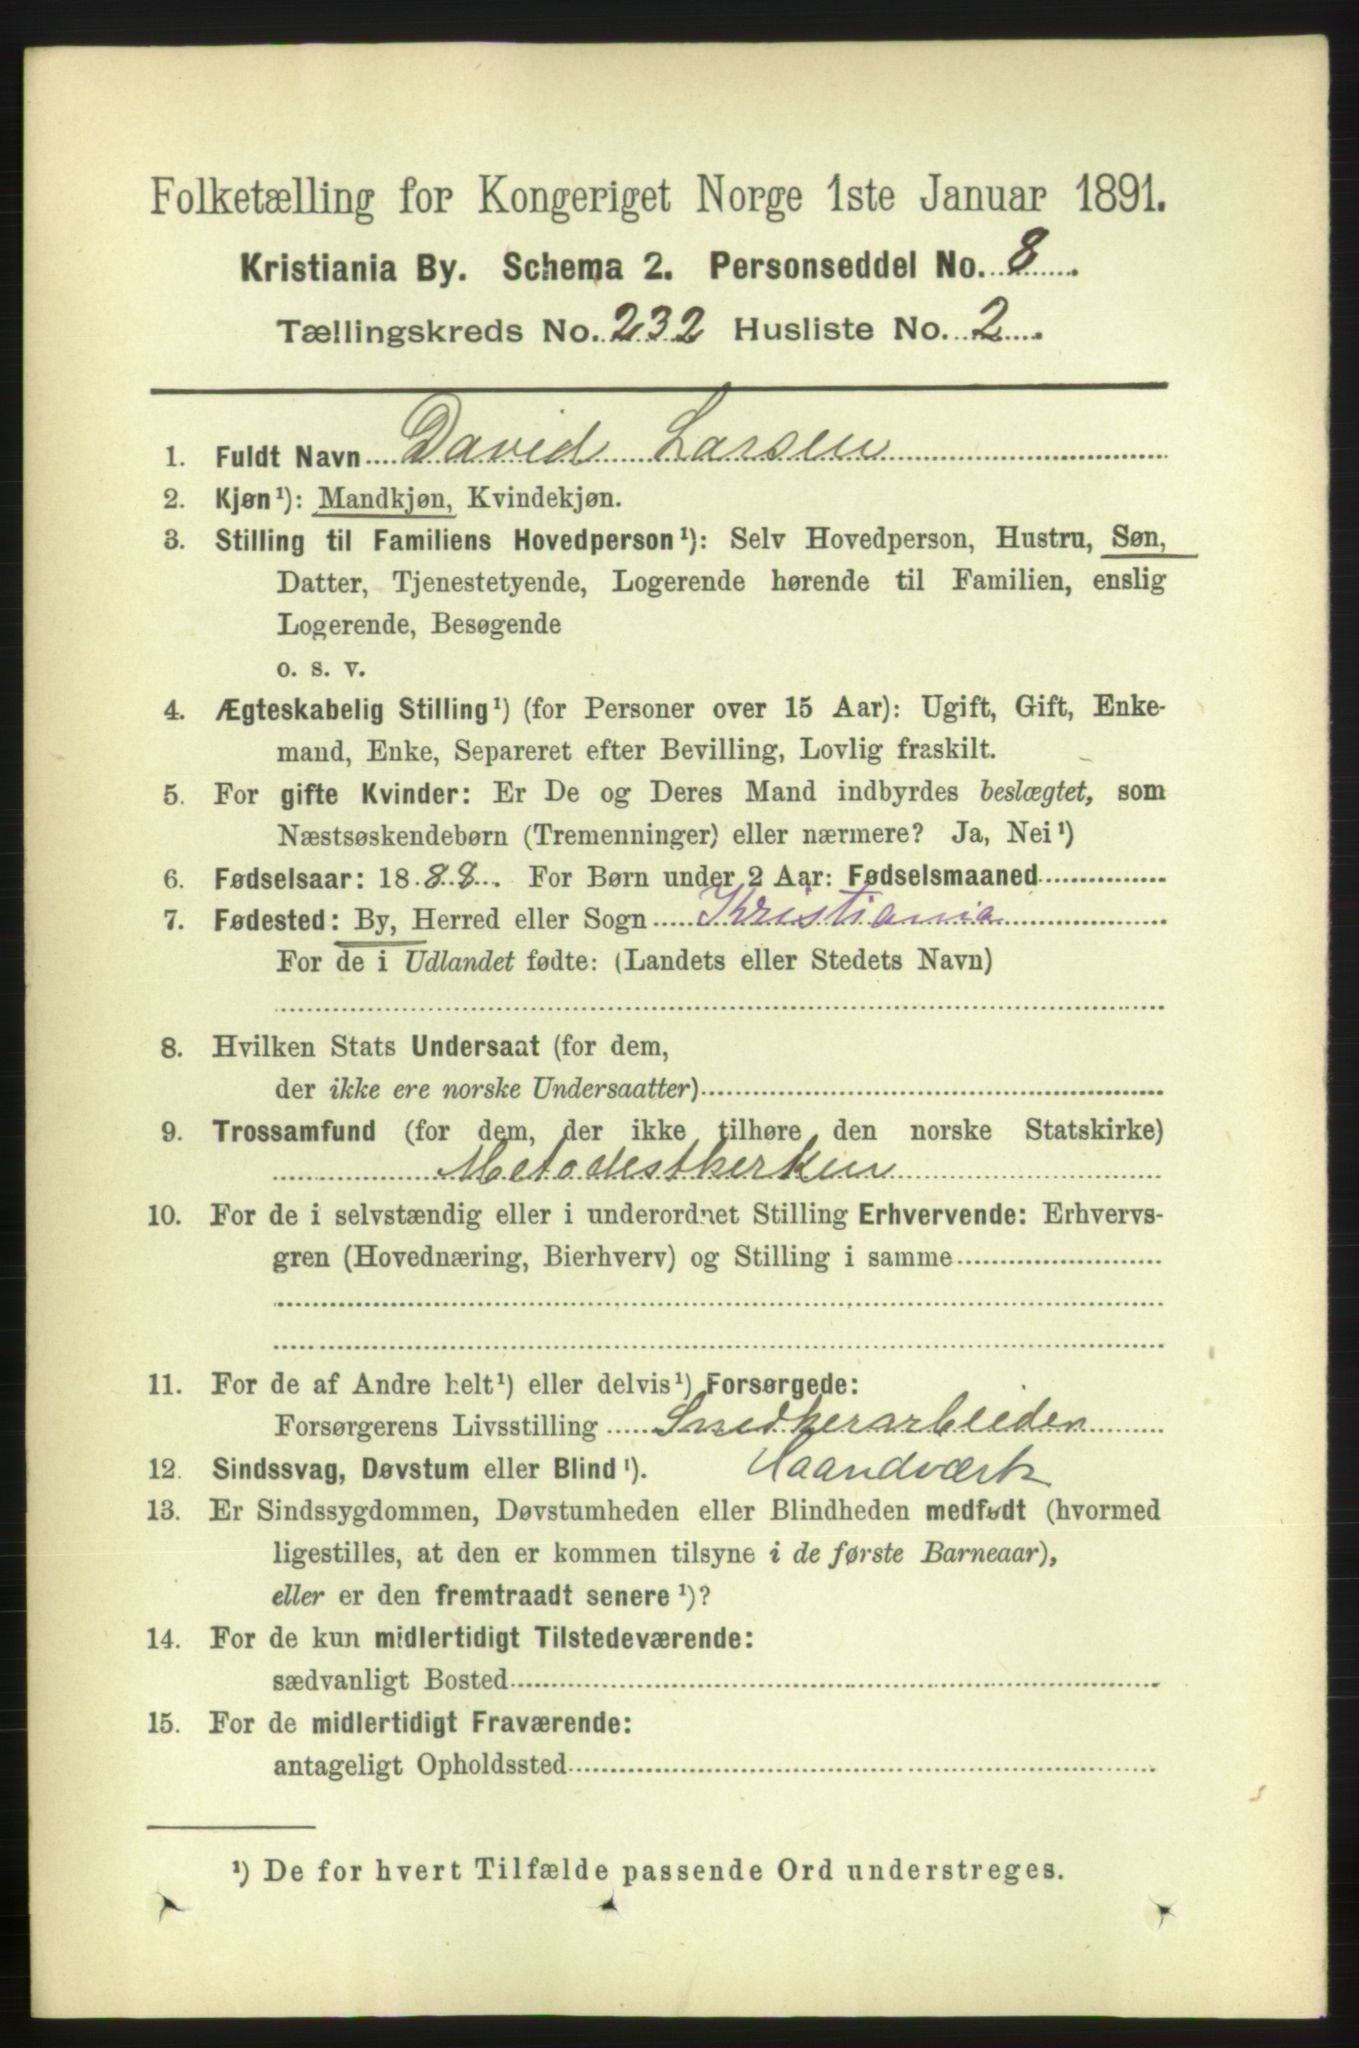 Folketælling for Kongeriget Norge 1ste Januar 1891.
Kristiania By. Schema 2. Personseddel No. 8.
Tællingskreds No. 232 Husliste No. 2.
1. Fuldt Navn David Larsen
2. Kjøn¹): Mandkjøn, Kvindekjøn.
3. Stilling til Familiens Hovedperson¹): Selv Hovedperson, Hustru, Søn,
Datter, Tjenestetyende, Logerende hørende til Familien, enslig
Logerende, Besøgende
o. s. v.
4. Ægteskabelig Stilling¹) (for Personer over 15 Aar): Ugift, Gift, Enke-
mand, Enke, Separeret efter Bevilling, Lovlig fraskilt.
5. For gifte Kvinder: Er De og Deres Mand indbyrdes beslægtet, som
Næstsøskendebørn (Tremenninger) eller nærmere? Ja, Nei¹)
6. Fødselsaar: 1888. For Børn under 2 Aar: Fødselsmaaned
7. Fødested: By, Herred eller Sogn Kristiania
For de i Udlandet fødte: (Landets eller Stedets Navn)
8. Hvilken Stats Undersaat (for dem,
der ikke ere norske Undersaatter)
9. Trossamfund (for dem, der ikke tilhøre den norske Statskirke)
Metodestkerken
10. For de i selvstændig eller i underordnet Stilling Erhvervende: Erhvervs-
gren (Hovednæring, Bierhverv) og Stilling i samme
11. For de af Andre helt¹) eller delvis¹) Forsørgede:
Forsørgerens Livsstilling Snedkerarbeiden
12. Sindssvag, Døvstum eller Blind¹). Haandværk
13. Er Sindssygdommen, Døvstumheden eller Blindheden medfødt (hvormed
ligestilles, at den er kommen tilsyne i de første Barneaar),
eller er den fremtraadt senere¹)?
14. For de kun midlertidigt Tilstedeværende:
sædvanligt Bosted
15. For de midlertidigt Fraværende:
antageligt Opholdssted
¹) De for hvert Tilfælde passende Ord understreges.